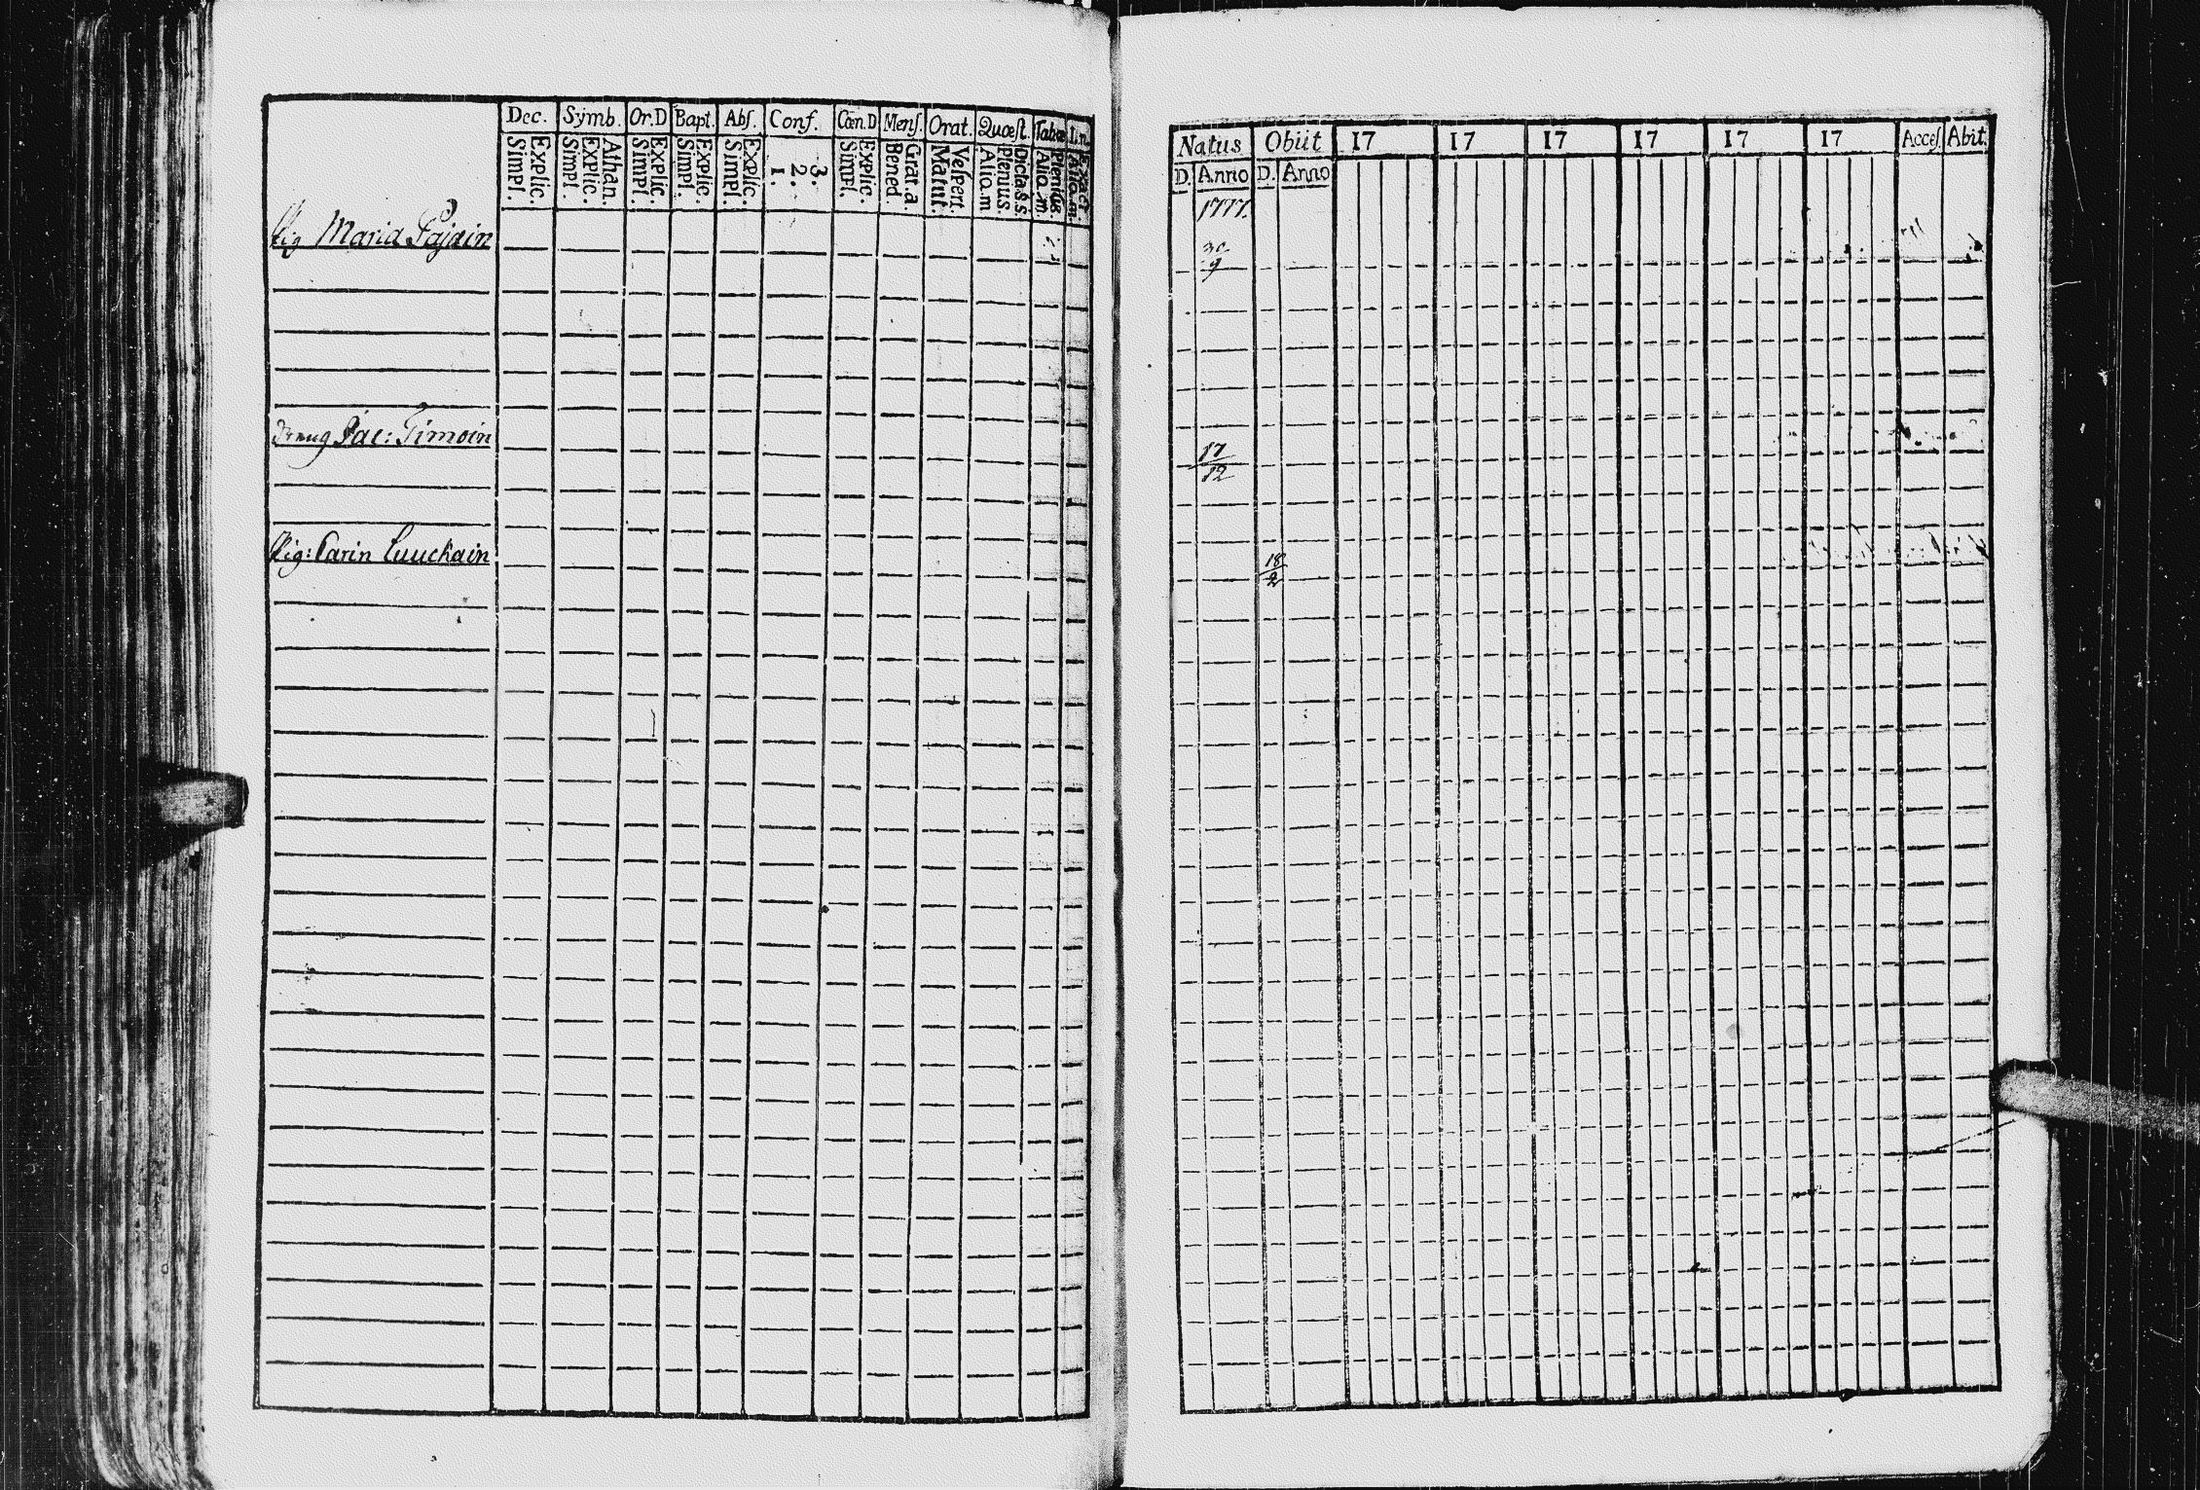 Dec. Symb. Or.D Bapt. Abſ. Conf. Cœn.D Menſ. Orat. Quœſt. Tabœ
Explic. Simpl. Athan. Explic. Simpl. Explic. Simpl. Explic. Simpl. Explic. Simpl. 3. 2. 1. Explic. Simpl. Grat.a Bened. Veſpert. Matut. Dicta.S.S. Plenius. Alio.m Plenius Alio.m. Exact Alio.m.
Pig Maria Pajain
Dreng Jac: Timoin
Pig: Carin Cuuckain
Natus Obiit 17 17 17 17 17 17 Acceſ. Abit.
D. Anno D. Anno
1777.
30
9
17
12
18
2